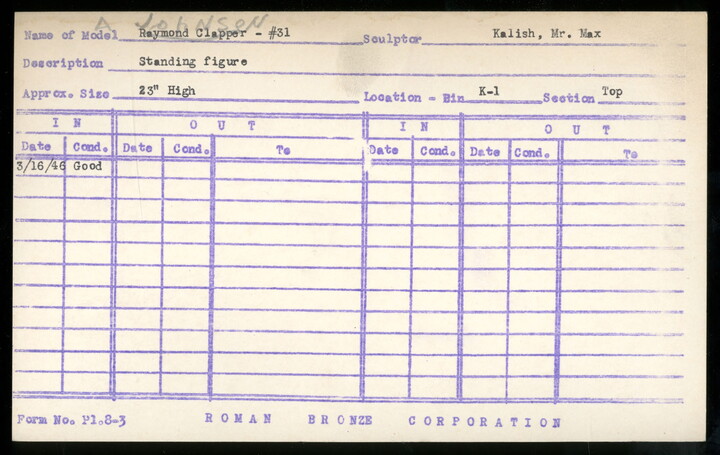 A JOHNSON
Name of Model Raymond Clapper - #31 Sculptor Kalish, Mr. Max
Description Standing figure
Approx. Size 23" High Location - Bin K-1 Section Top
IN OUT IN OUT
Date Cond. Date Cond. To Date Cond. Date Cond. To
3/16/46 Good
Form No. P1.8-3 ROMAN BRONZE CORPORATION